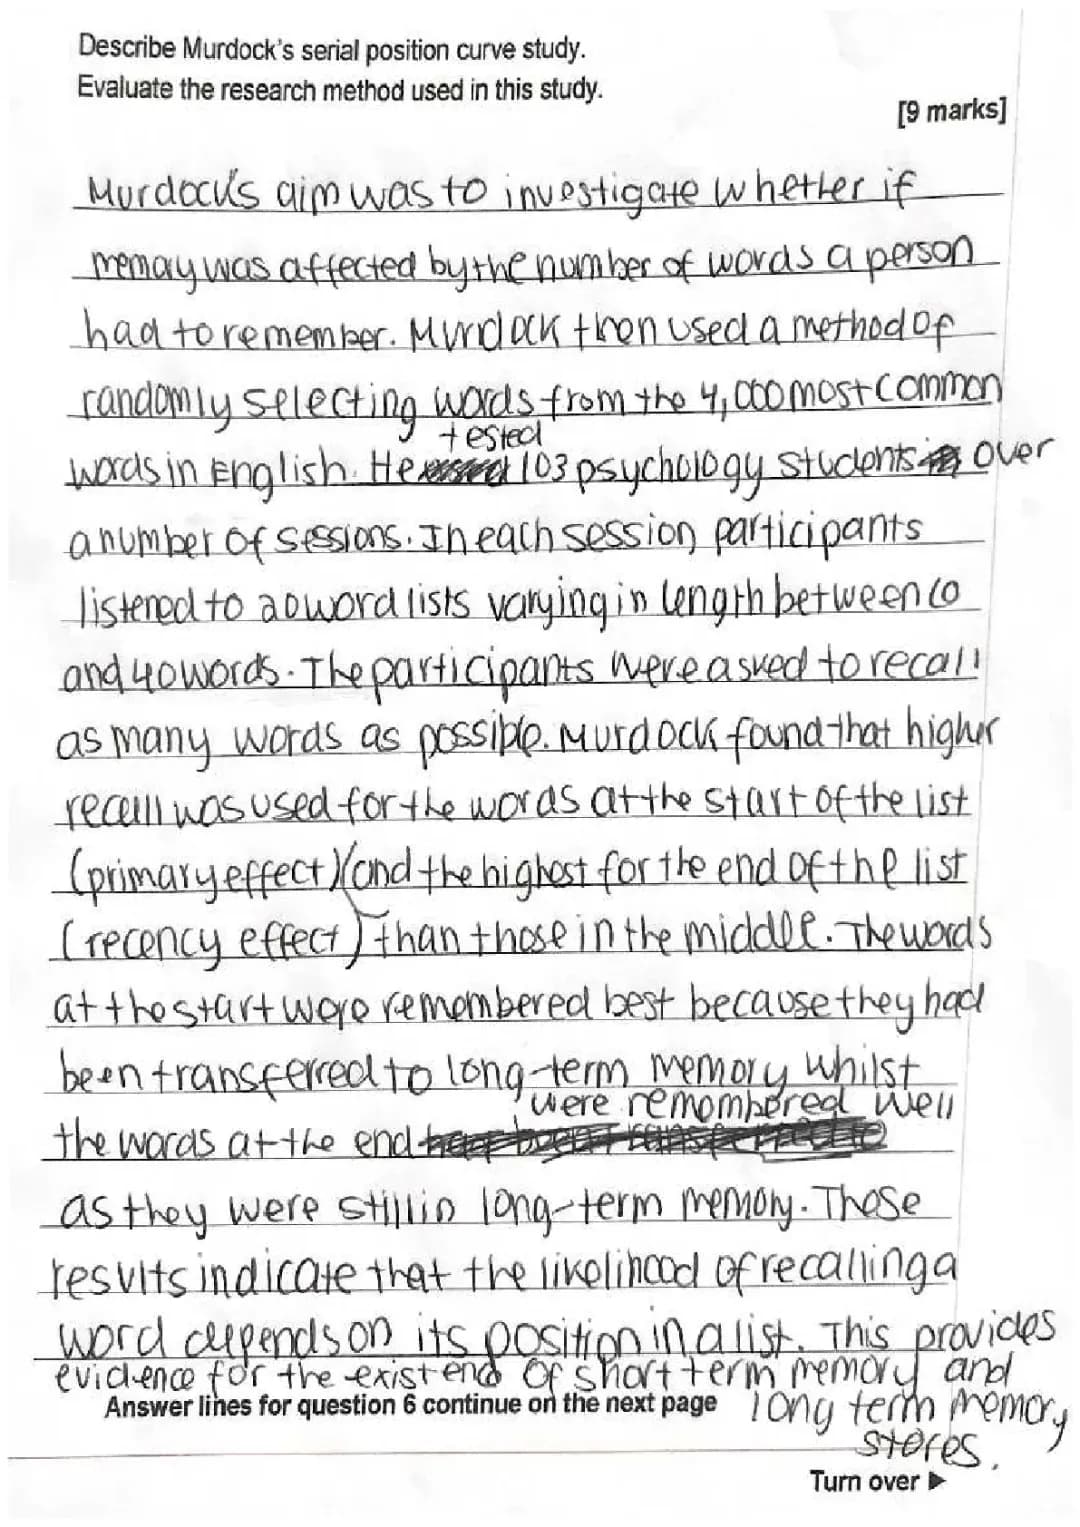 Describe Murdock's serial position curve study.
Evaluate the research method used in this study.
[9 marks]
Murdock's aim was to investigate whether if
memory was affected by the number of words a person
had to remember. Murdock then used a method of
randomly selecting words from the 4,000 most common
tested
words in English. He 103 psychology students over
a number of sessions. In each session participants
listened to 20 word lists varying in length between 10
and 40 words. The participants were asked to recall
as many words as possible. Murdock found that higher
recall was used for the words at the start of the list
(primary effect) and the highest for the end of the list
(recency effect) than those in the middle. The words
at the start were remembered best because they had
been transferred to long-term memory whilst
were remembered well
the words at the end
as they were still in long-term memory. These
results indicate that the likelihood of recalling a
word depends on its position in a list. This provides
evidence for the existend of short term memory and
long term memory
stores.
Answer lines for question 6 continue on the next page
Turn over ►